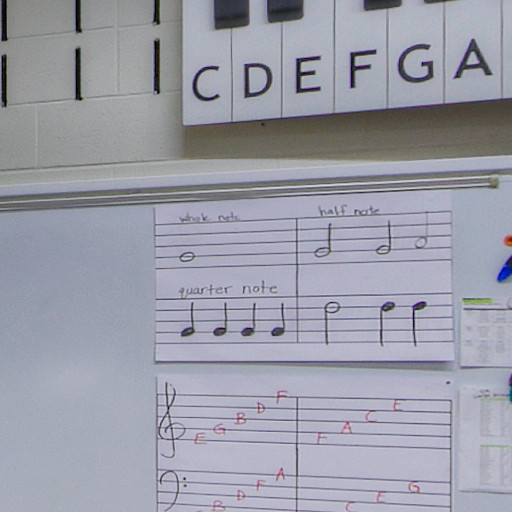 C D E F G A
whole note half note
quarter note
E G B D F F A C E
B D F A C E G